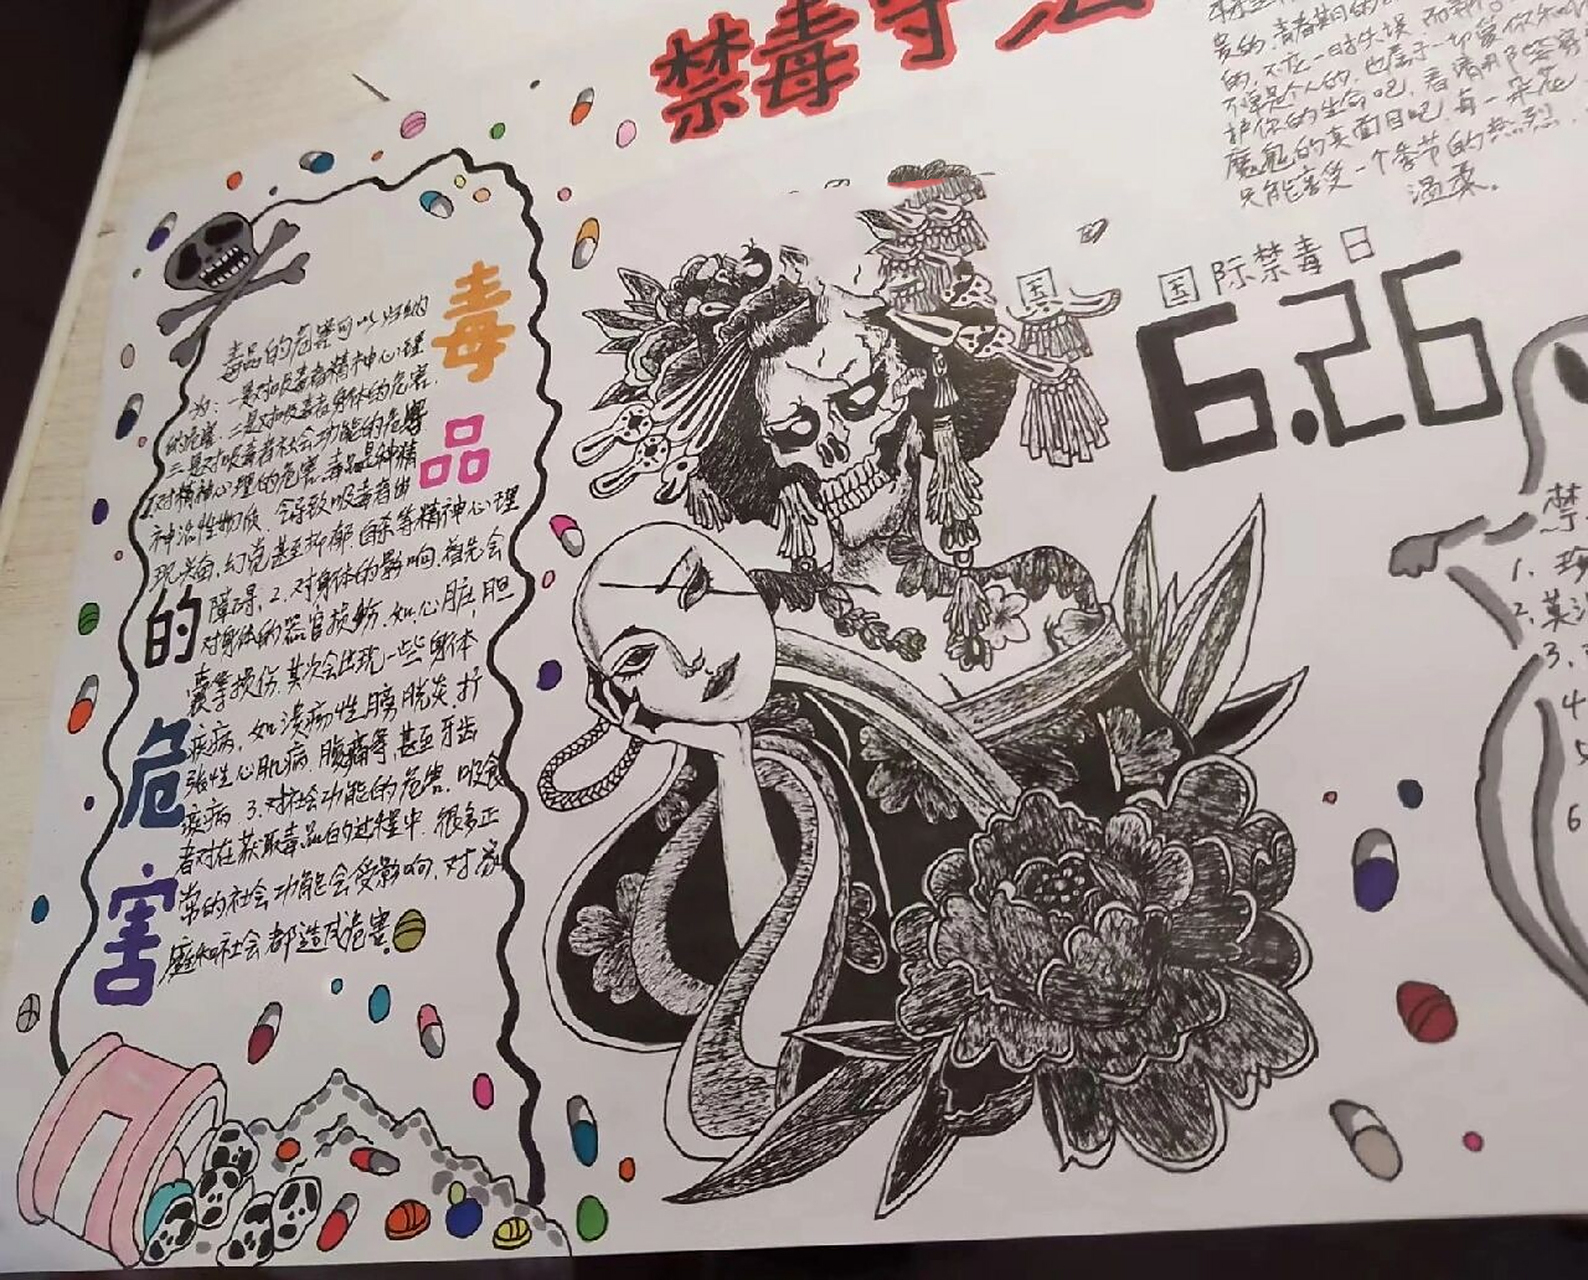 禁毒守法
贵的,青春期的
的,不应一时失误,而
不单是个人的,也属于一切爱你
护你的生命吧,看清
魔鬼的真面目吧,每一朵花
只能享受一个季节的热烈
温柔。
国
国际禁毒日
6.26
毒品的危害
毒品的危害可以归纳
为:一是对吸毒者精神心理
的危害.二是对吸毒者身体的危害.
三是对吸毒者社会功能的危害
1.对精神心理的危害.毒品是种精
神活性物质,会导致吸毒者出
现兴奋,幻觉甚至抑郁,自杀等精神心理
障碍,2.对身体的影响,首先会
对身体的器官损伤,如心脏,胆
囊等损伤,其次会出现一些身体
疾病,如溃疡性膀胱炎,扩
张性心肌病,腹痛等,甚至牙齿
疾病 3.对社会功能的危害,吸食
者对在获取毒品的过程中,很多正
常的社会功能会受影响,对家
庭和社会都造成危害.
禁
1.
2.
3.
4
5
6